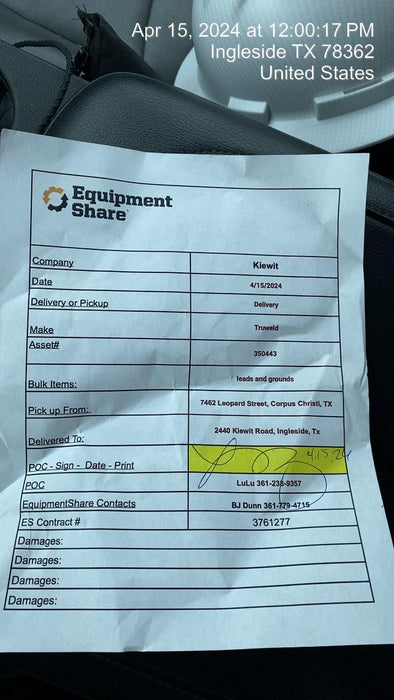 Apr 15, 2024 at 12:00:17 PM
Ingleside TX 78362
United States
Equipment
Share
Company Kiewit
Date 4/15/2024
Delivery or Pickup Delivery
Make Truweld
Asset# 350443
Bulk Items: leads and grounds
Pick up From: 7462 Leopard Street, Corpus Christi, TX
Delivered To: 2440 Kiewit Road, Ingleside, Tx
POC - Sign - Date - Print 4.15.24
POC LuLu 361-238-9357
EquipmentShare Contacts BJ Dunn 361-779-4715
ES Contract # 3761277
Damages:
Damages:
Damages:
Damages: